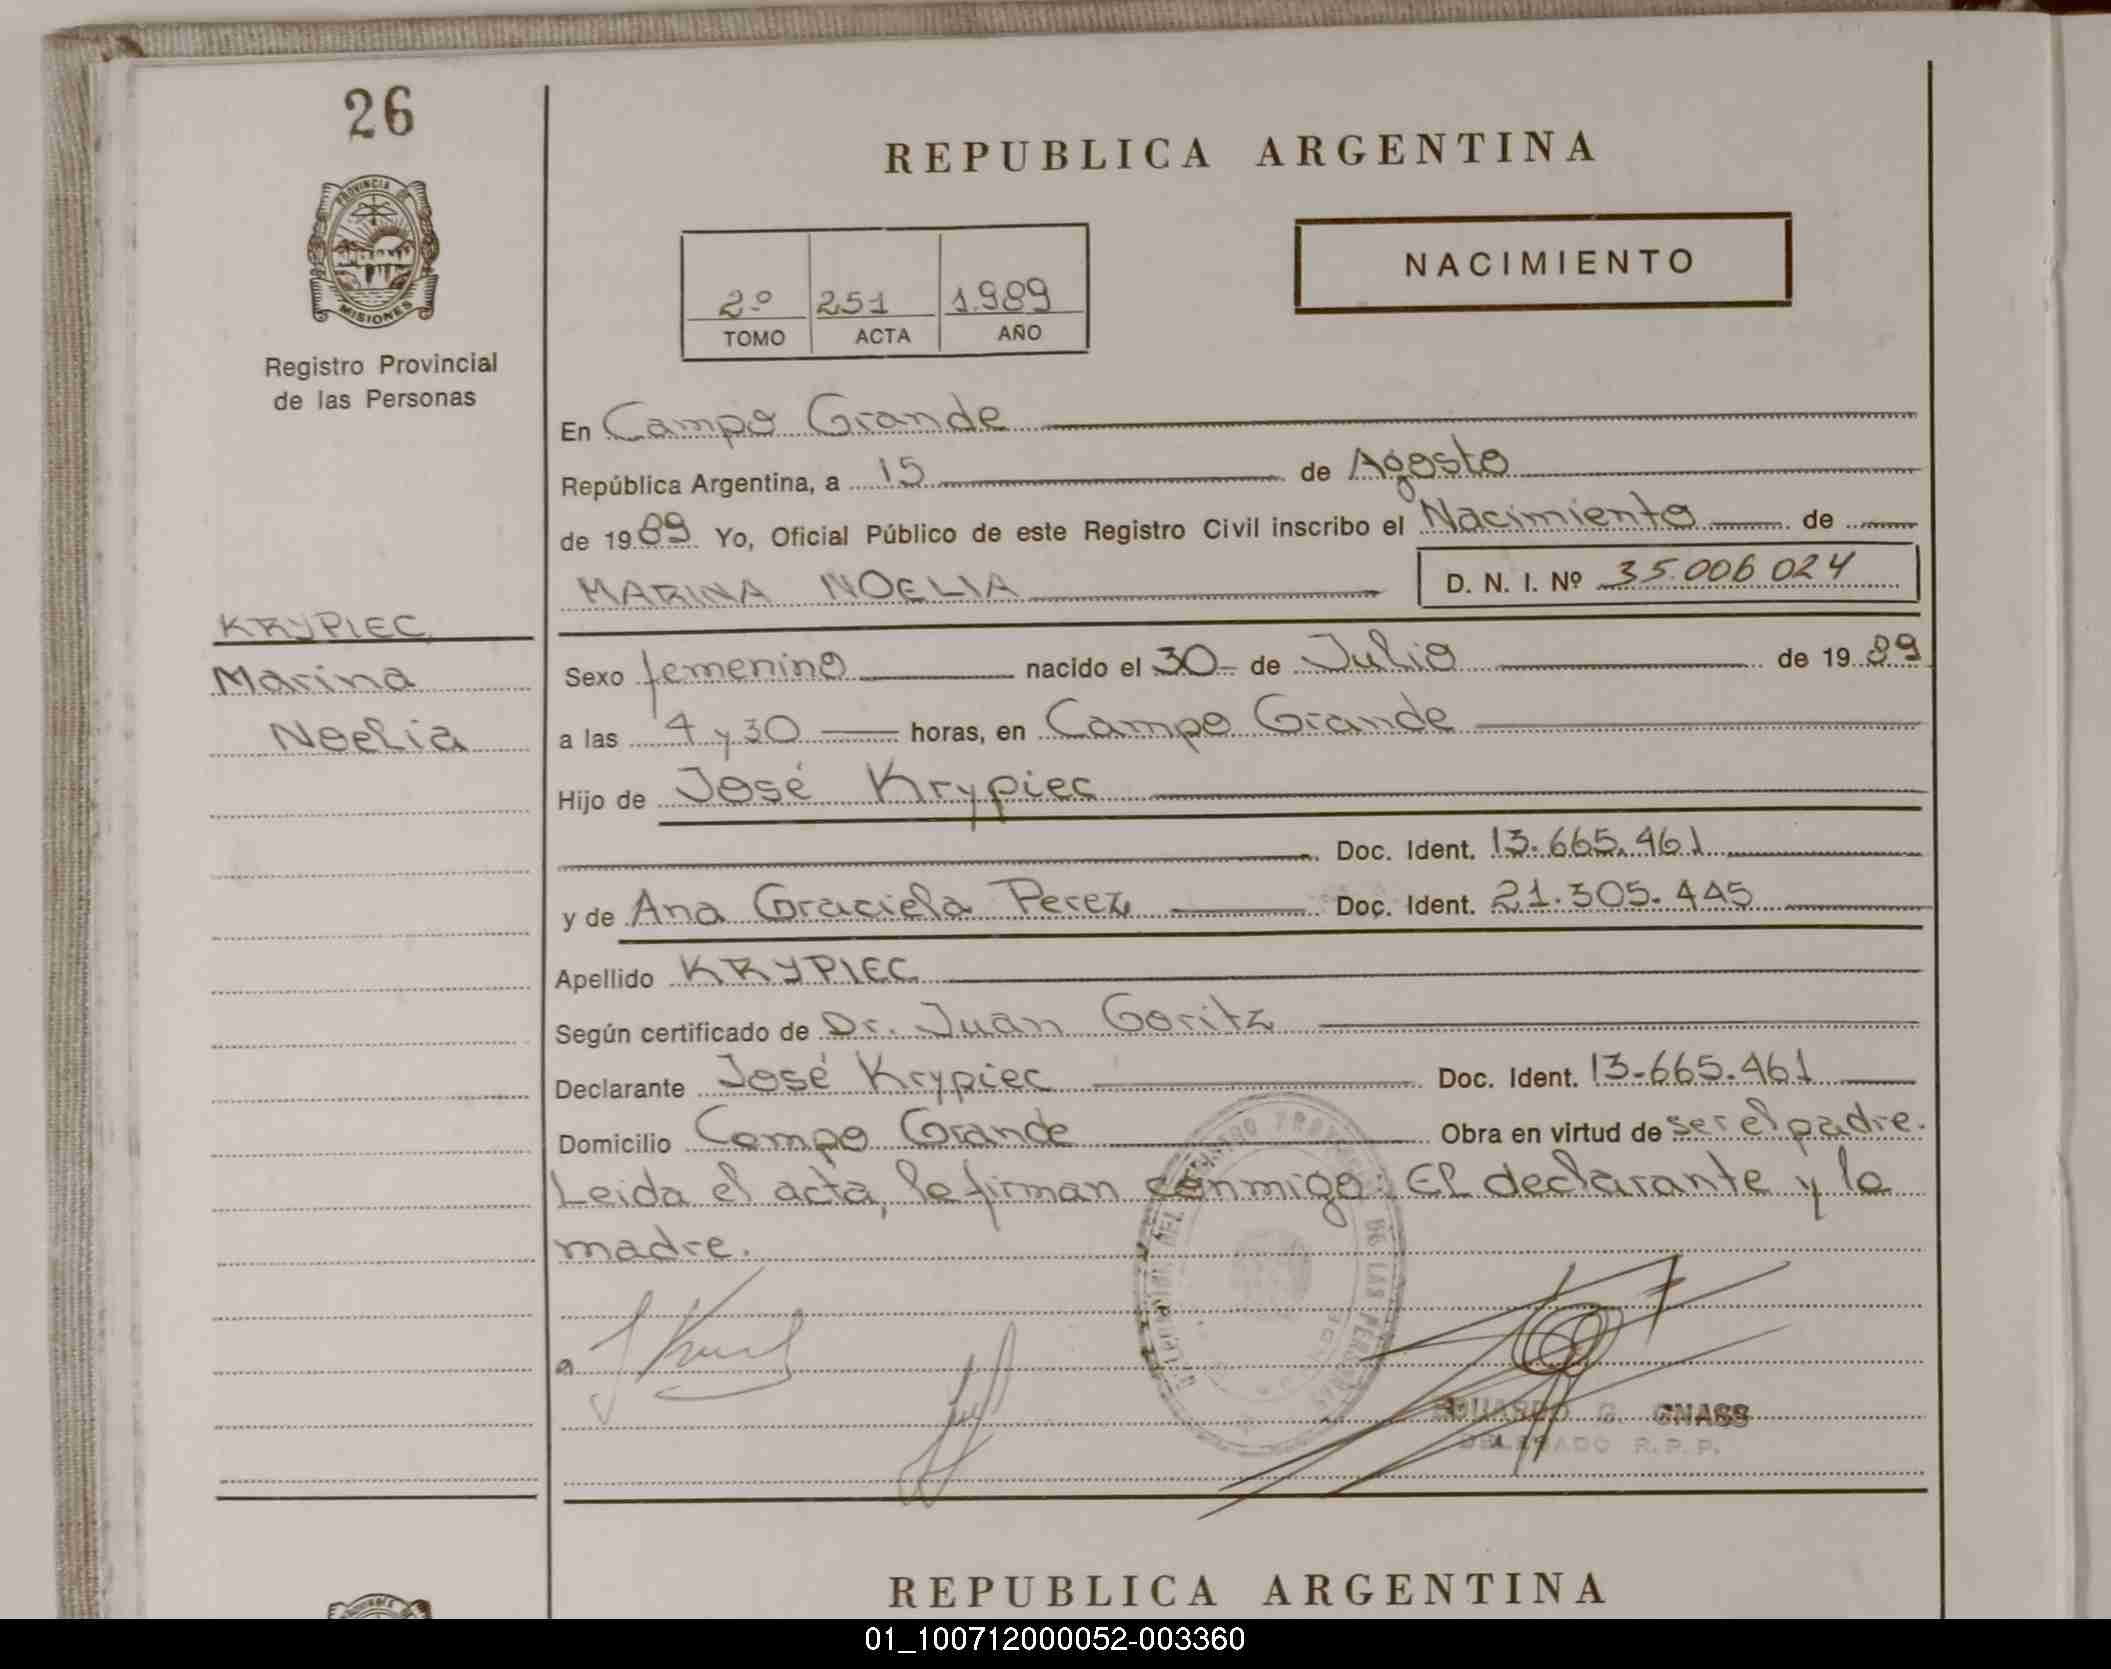 26
PROVINCIA DE
MISIONES
Registro Provincial
de las Personas
KRYPIEC
Marina
Noelia
REPUBLICA ARGENTINA
2º 251 1.989
TOMO ACTA AÑO
NACIMIENTO
En Campo Grande
República Argentina, a 15 de Agosto
de 1989 Yo, Oficial Público de este Registro Civil inscribo el Nacimiento de
MARINA NOELIA D. N. I. Nº 35.006.024
Sexo femenino nacido el 30 de Julio de 1989
a las 4 y 30 horas, en Campo Grande
Hijo de José Krypiec
Doc. Ident. 13.665.461
y de Ana Graciela Perez Doc. Ident. 21.305.445
Apellido KRYPIEC
Según certificado de Dr. Juan Goritz
Declarante José Krypiec Doc. Ident. 13-665.461
Domicilio Campo Grande Obra en virtud de ser el padre.
Leida el acta, la firman conmigo: El declarante y la
madre.
DE LAS PERSONAS
EDUARDO G. GNASS
DELEGADO R. P. P.
REPUBLICA ARGENTINA
01_100712000052-003360